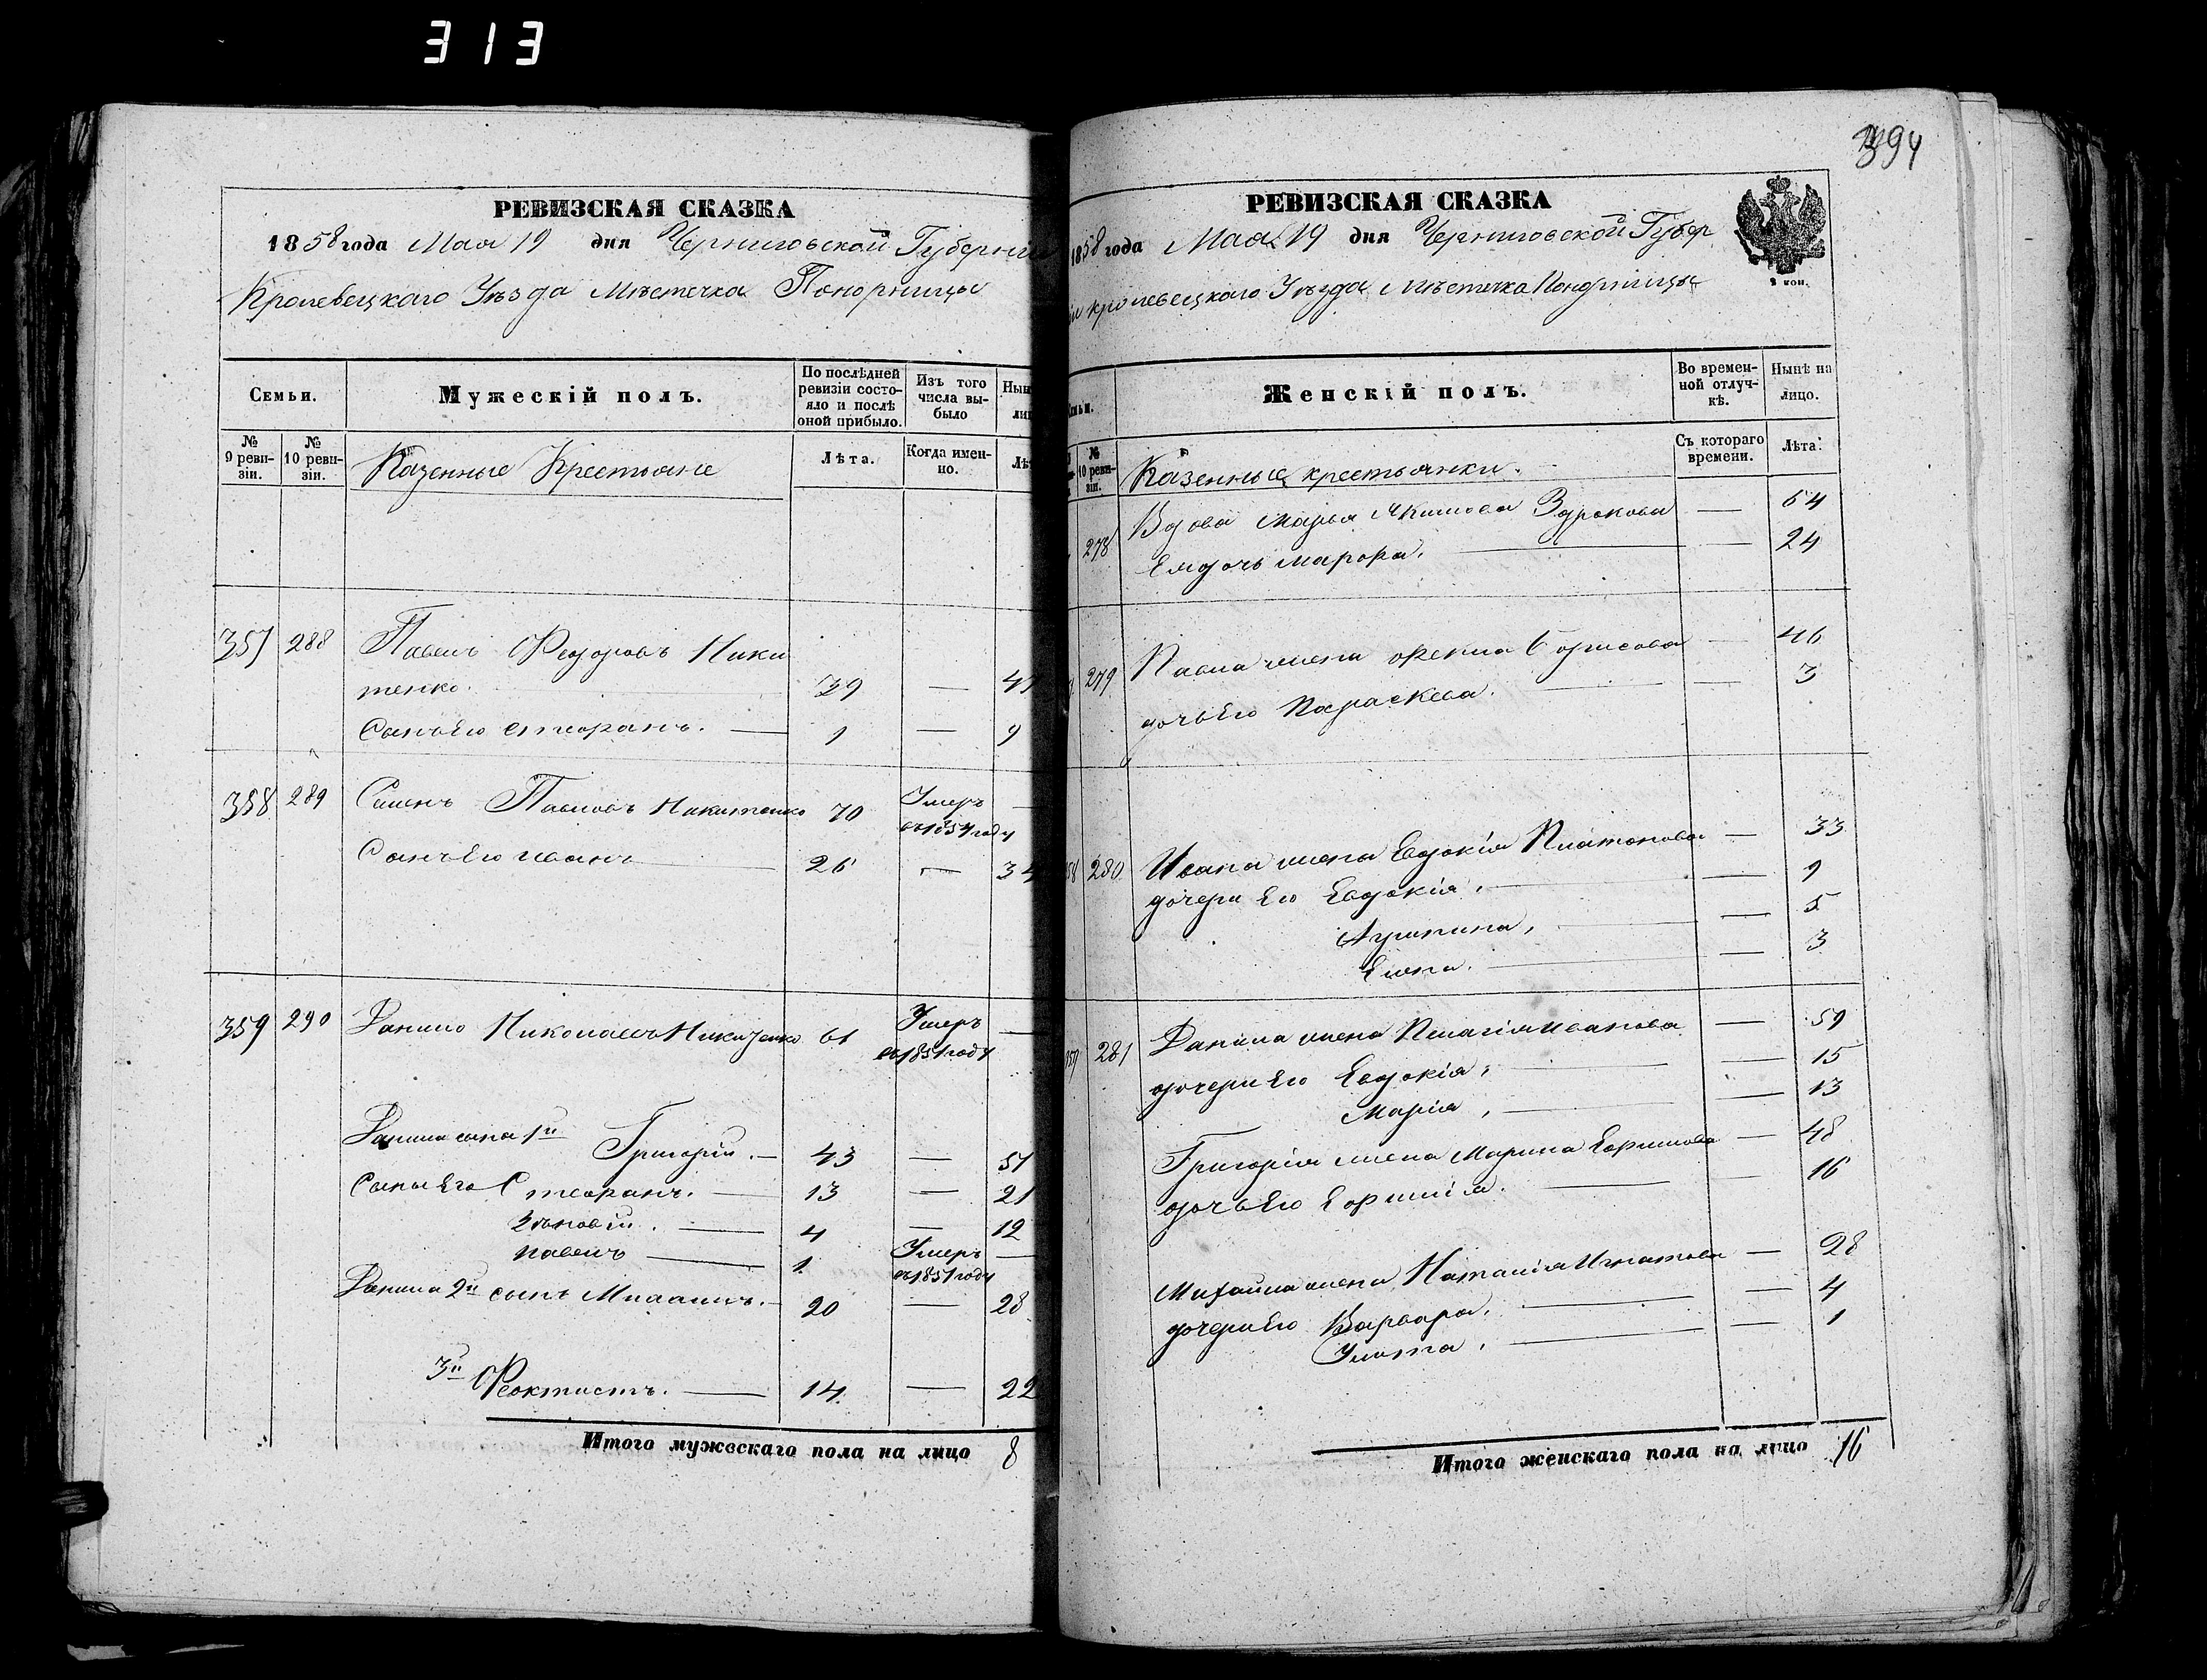 313
РЕВИЗСКАЯ СКАЗКА
1858 года Мая 19 дня Черниговской Губерніи
Кролевецкаго Уѣзда Мѣстечка Понорницы
Семьи. Мужескій полъ. По послѣдней ревизіи состояло и послѣ оной прибыло. Изъ того числа выбыло Нын
№ 9 ревизіи. № 10 ревизіи. Казенные Крестьяне Лѣта. Когда именно. Лѣт
357 288 Павелъ Федоровъ Ники
тенко. 39 — 47
Сынъ Его Стефанъ. — 1 — 9
358 289 Семенъ Павловъ Никитенко 70 Умеръ —
въ 1854 году
Сынъ Его Иванъ 26 — 34
359 290 Данило Николаевъ Никитенко 61 Умеръ —
въ 1851 году
Данила сынъ 1й Григорій. — 43 — 51
Сыны Его Стефанъ. — 13 — 21
Зѣновій. — 4 — 12
Павелъ — 1 Умеръ —
въ 1851 году
Данила 2й сынъ Михаилъ. — 20 — 28
3й Феоктистъ. — 14 — 22
Итого мужескаго пола на лицо 8
394
РЕВИЗСКАЯ СКАЗКА
1858 года Мая 19 дня Черниговской Губер
ніи Кролевецкаго Уѣзда Мѣстечка Понорницы
2 коп.
Женскій полъ. Во временной отлучкѣ. Нынѣ на лицо.
№ 10 ревизіи. Казенные крестьянки. Съ котораго времени. Лѣта.
278 Вдова Марья Якимова — 64
Ея дочь Марфа. — — 24
279 Павла жена Борисова — 46
дочь Его Параскева. — — 3
358 280 Ивана жена Евдокія Платонова — 33
дочери Его Евдокія, — — 9
Агрипина, — — 5
Елена. — — 3
359 281 Данила жена Пелагія Иванова — 59
дочери Его Евдокія, — — 15
Марія, — — 13
Григорія жена Марина Ефимова — 48
дочь Его Ефимія. — — 16
Михаила жена Наталія Игнатова — 28
дочери Его Варвара, — — 4
Улита, — — 1
Итого женскаго пола на лицо 16